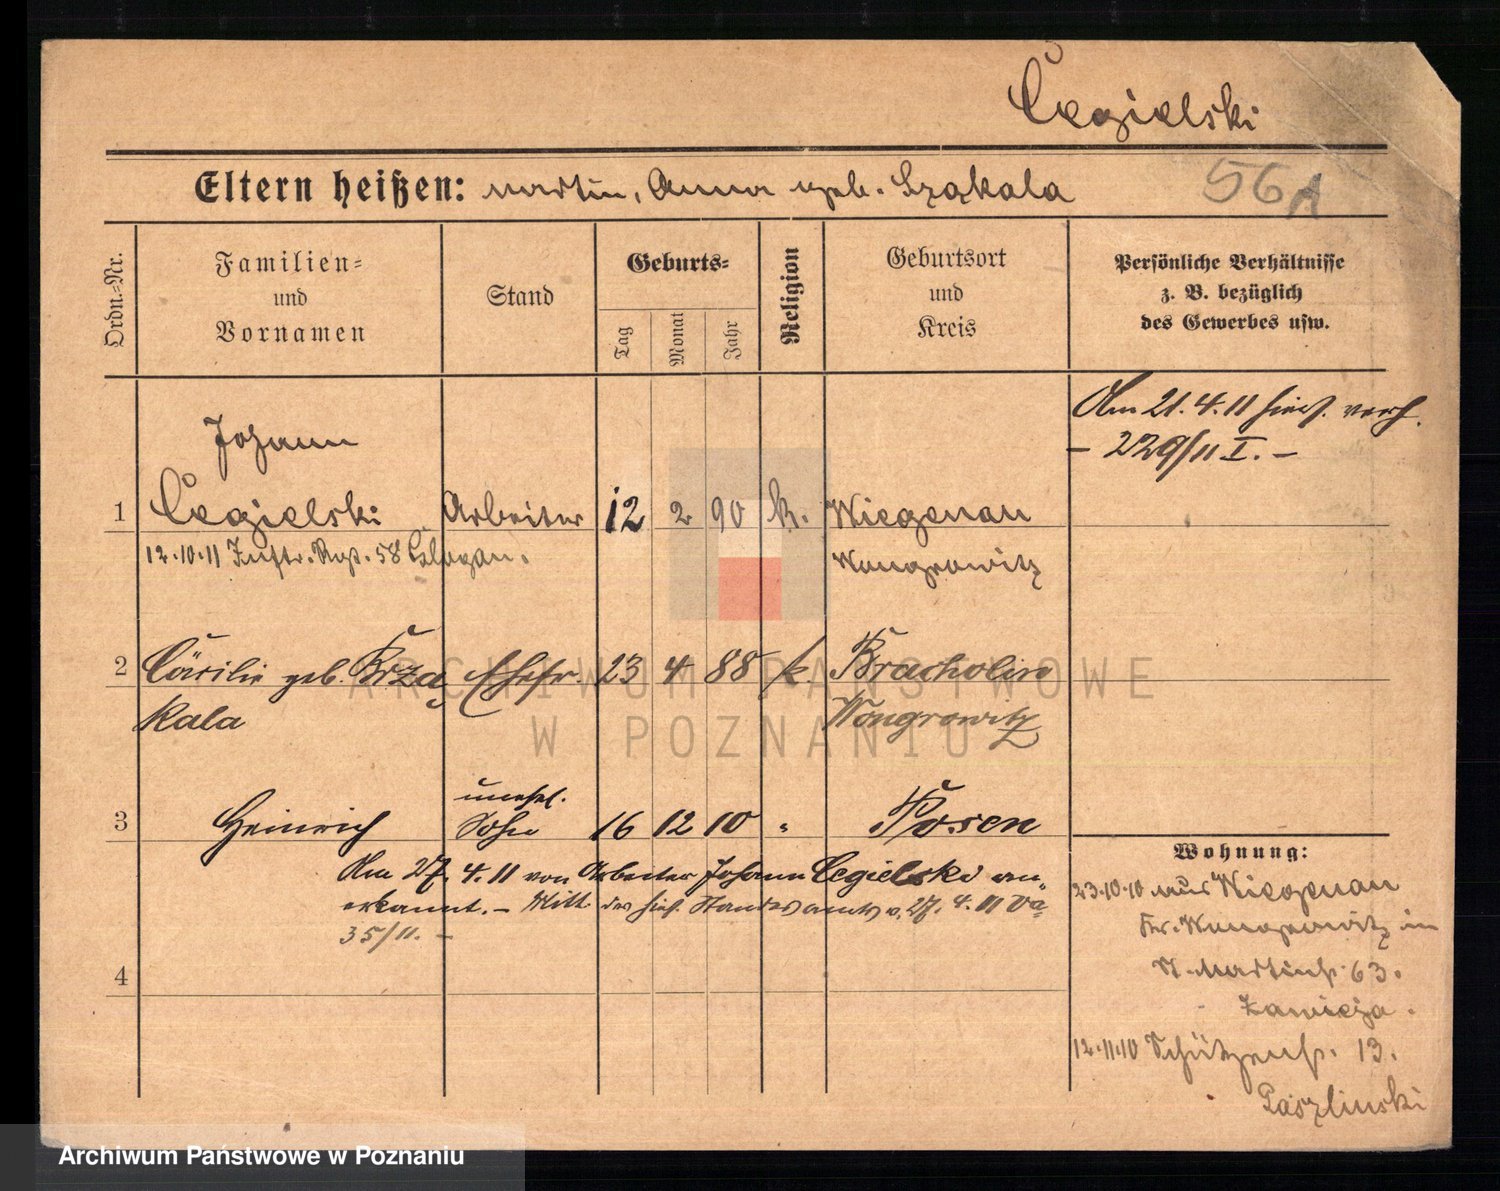 Cegielski
56A
Eltern heißen: Martin, Anna geb. Szakala
Ordn.-Nr.
Familien-
und
Vornamen
Stand
Geburts-
Tag
Monat
Jahr
Religion
Geburtsort
und
Kreis
Persönliche Verhältnisse
z. B. bezüglich
des Gewerbes usw.
Am 21.4.11 hies. verh.
- 229/11 I. -
Johann
1 Cegielski Arbeiter 12 2 90 k. Wiegenau
12.10.11 Inftr. Rgt. 58 Glogau. Wongrowitz
2 Cäcilie geb. Krza Ehefr. 23 4 88 k. Bracholin
kala Wongrowitz
unehel.
3 Heinrich Sohn 16 12 10 " Posen
Am 27. 4. 11 von Arbeiter Johann Cegielski an-
erkannt. - Mitt. des hies. Standesamts v. 27. 4. 11
35/11. -
4
Wohnung:
23.10.10 aus Wiegenau
Kr. Wongrowitz in
St. Martinstr. 63.
12.11.10 Schützenstr. 13.
Paszlinski
ARCHIWUM PAŃSTWOWE
W POZNANIU
Archiwum Państwowe w Poznaniu